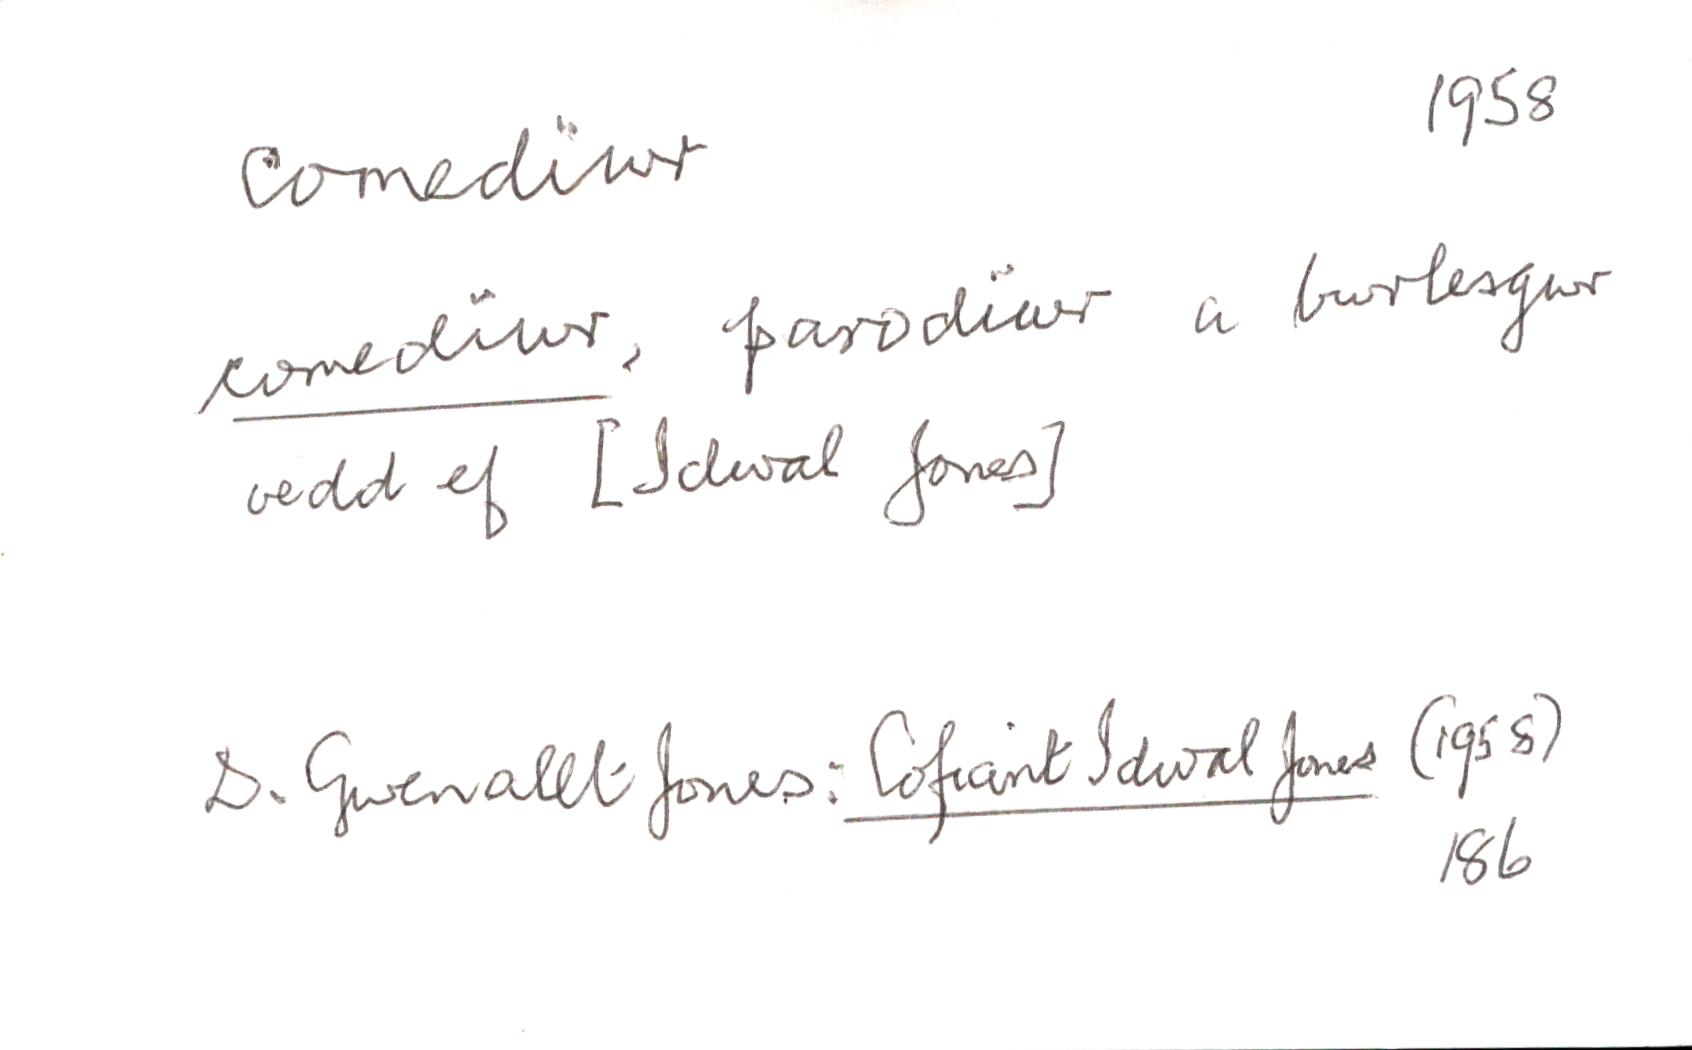 1958
comedïwr
comedïwr, parodïwr a bwrlesgwr
oedd ef [Idwal Jones]
D. Gwenallt Jones: Cofiant Idwal Jones (1958)
186